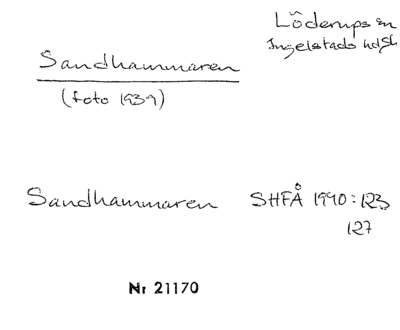 Löderups sn
Ingelstads hd Sk
Sandhammaren
(foto 1939)
Sandhammaren SHFÅ 1990:123
127
Nr 21170